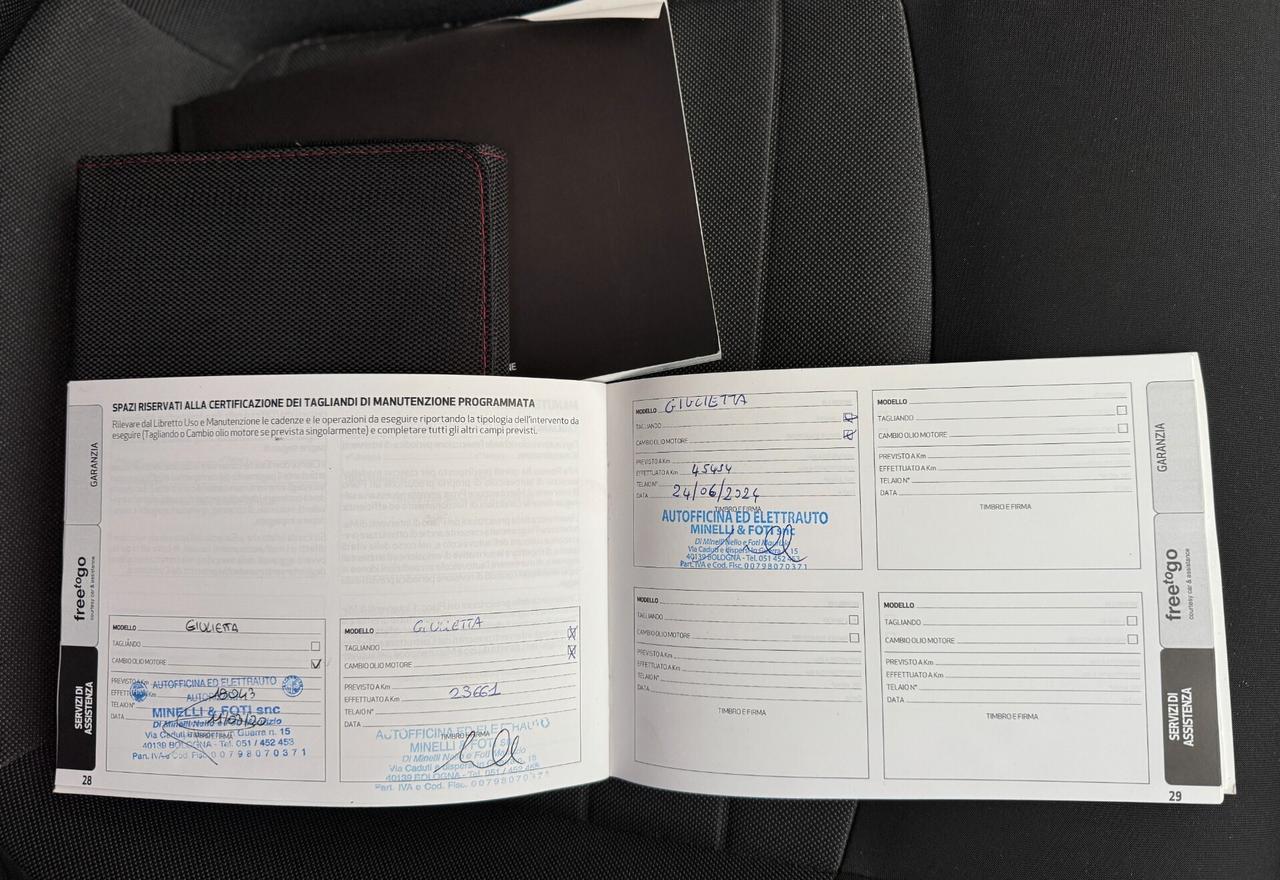 NE
SPAZI RISERVATI ALLA CERTIFICAZIONE DEI TAGLIANDI DI MANUTENZIONE PROGRAMMATA
Rilevare dal Libretto Uso e Manutenzione le cadenze e le operazioni da eseguire riportando la tipologia dell'intervento da
eseguire (Tagliando o Cambio olio motore se prevista singolarmente) e completare tutti gli altri campi previsti.
GARANZIA
freetogo
courtesy car & assistance
SERVIZI DI
ASSISTENZA
MODELLO GIULIETTA
TAGLIANDO
CAMBIO OLIO MOTORE
PREVISTO A Km
EFFETTUATO A Km 18043
TELAIO N°
DATA
TIMBRO E FIRMA
AUTOFFICINA ED ELETTRAUTO
MINELLI & FOTI snc
Di Minelli Nello e Foti Maurizio
Via Caduti e dispersi in Guerra n. 15
40139 BOLOGNA - Tel. 051 / 452 453
Part. IVA e Cod. Fisc. 00798070371
MODELLO GIULIETTA
TAGLIANDO
CAMBIO OLIO MOTORE
PREVISTO A Km
EFFETTUATO A Km 23661
TELAIO N°
DATA
TIMBRO E FIRMA
AUTOFFICINA ED ELETTRAUTO
MINELLI & FOTI snc
Di Minelli Nello e Foti Maurizio
Via Caduti e dispersi in Guerra n. 15
40139 BOLOGNA - Tel. 051 / 452 453
Part. IVA e Cod. Fisc. 00798070371
28
MODELLO GIULIETTA
TAGLIANDO
CAMBIO OLIO MOTORE
PREVISTO A Km
EFFETTUATO A Km 45454
TELAIO N°
DATA 24/06/2024
TIMBRO E FIRMA
AUTOFFICINA ED ELETTRAUTO
MINELLI & FOTI snc
Di Minelli Nello e Foti Maurizio
Via Caduti e dispersi in Guerra n. 15
40139 BOLOGNA - Tel. 051 452 453
Part. IVA e Cod. Fisc. 00798070371
MODELLO
TAGLIANDO
CAMBIO OLIO MOTORE
PREVISTO A Km
EFFETTUATO A Km
TELAIO N°
DATA
TIMBRO E FIRMA
MODELLO
TAGLIANDO
CAMBIO OLIO MOTORE
PREVISTO A Km
EFFETTUATO A Km
TELAIO N°
DATA
TIMBRO E FIRMA
MODELLO
TAGLIANDO
CAMBIO OLIO MOTORE
PREVISTO A Km
EFFETTUATO A Km
TELAIO N°
DATA
TIMBRO E FIRMA
GARANZIA
freetogo
courtesy car & assistance
SERVIZI DI
ASSISTENZA
29